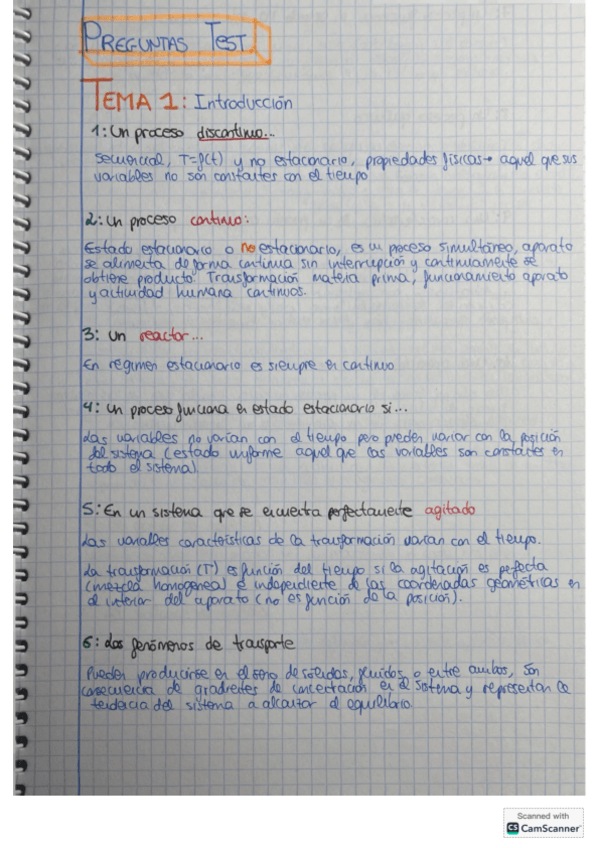 PREGUNTAS TEST
TEMA 1: Introducción
1: Un proceso discontinuo...
Secuencial, T=f(t) y no estacionario, propiedades físicas → aquel que sus
variables no son constantes con el tiempo
2: Un proceso continuo:
Estado estacionario o no estacionario, es un proceso simultáneo, aparato
se alimenta de forma continua sin interrupción y continuamente se
obtiene producto. Transformación materia prima, funcionamiento aparato
y actividad humana continuos.
3: Un reactor...
En régimen estacionario es siempre en continuo
4: Un proceso funciona en estado estacionario si...
Las variables no varían con el tiempo pero pueden variar con la posición
del sistema (estado uniforme aquel que las variables son constantes en
todo el sistema).
5: En un sistema que se encuentra perfectamente agitado
Las variables características de la transformación varían con el tiempo.
La transformación (T') es función del tiempo si la agitación es perfecta
(mezcla homogénea) e independiente de las coordenadas geométricas en
el interior del aparato (no es función de la posición).
6: Los fenómenos de transporte
Pueden producirse en el seno de sólidos, fluidos o entre ambos, son
consecuencia de gradientes de concentración en el sistema y representan la
tendencia del sistema a alcanzar el equilibrio.
Scanned with
CS CamScanner